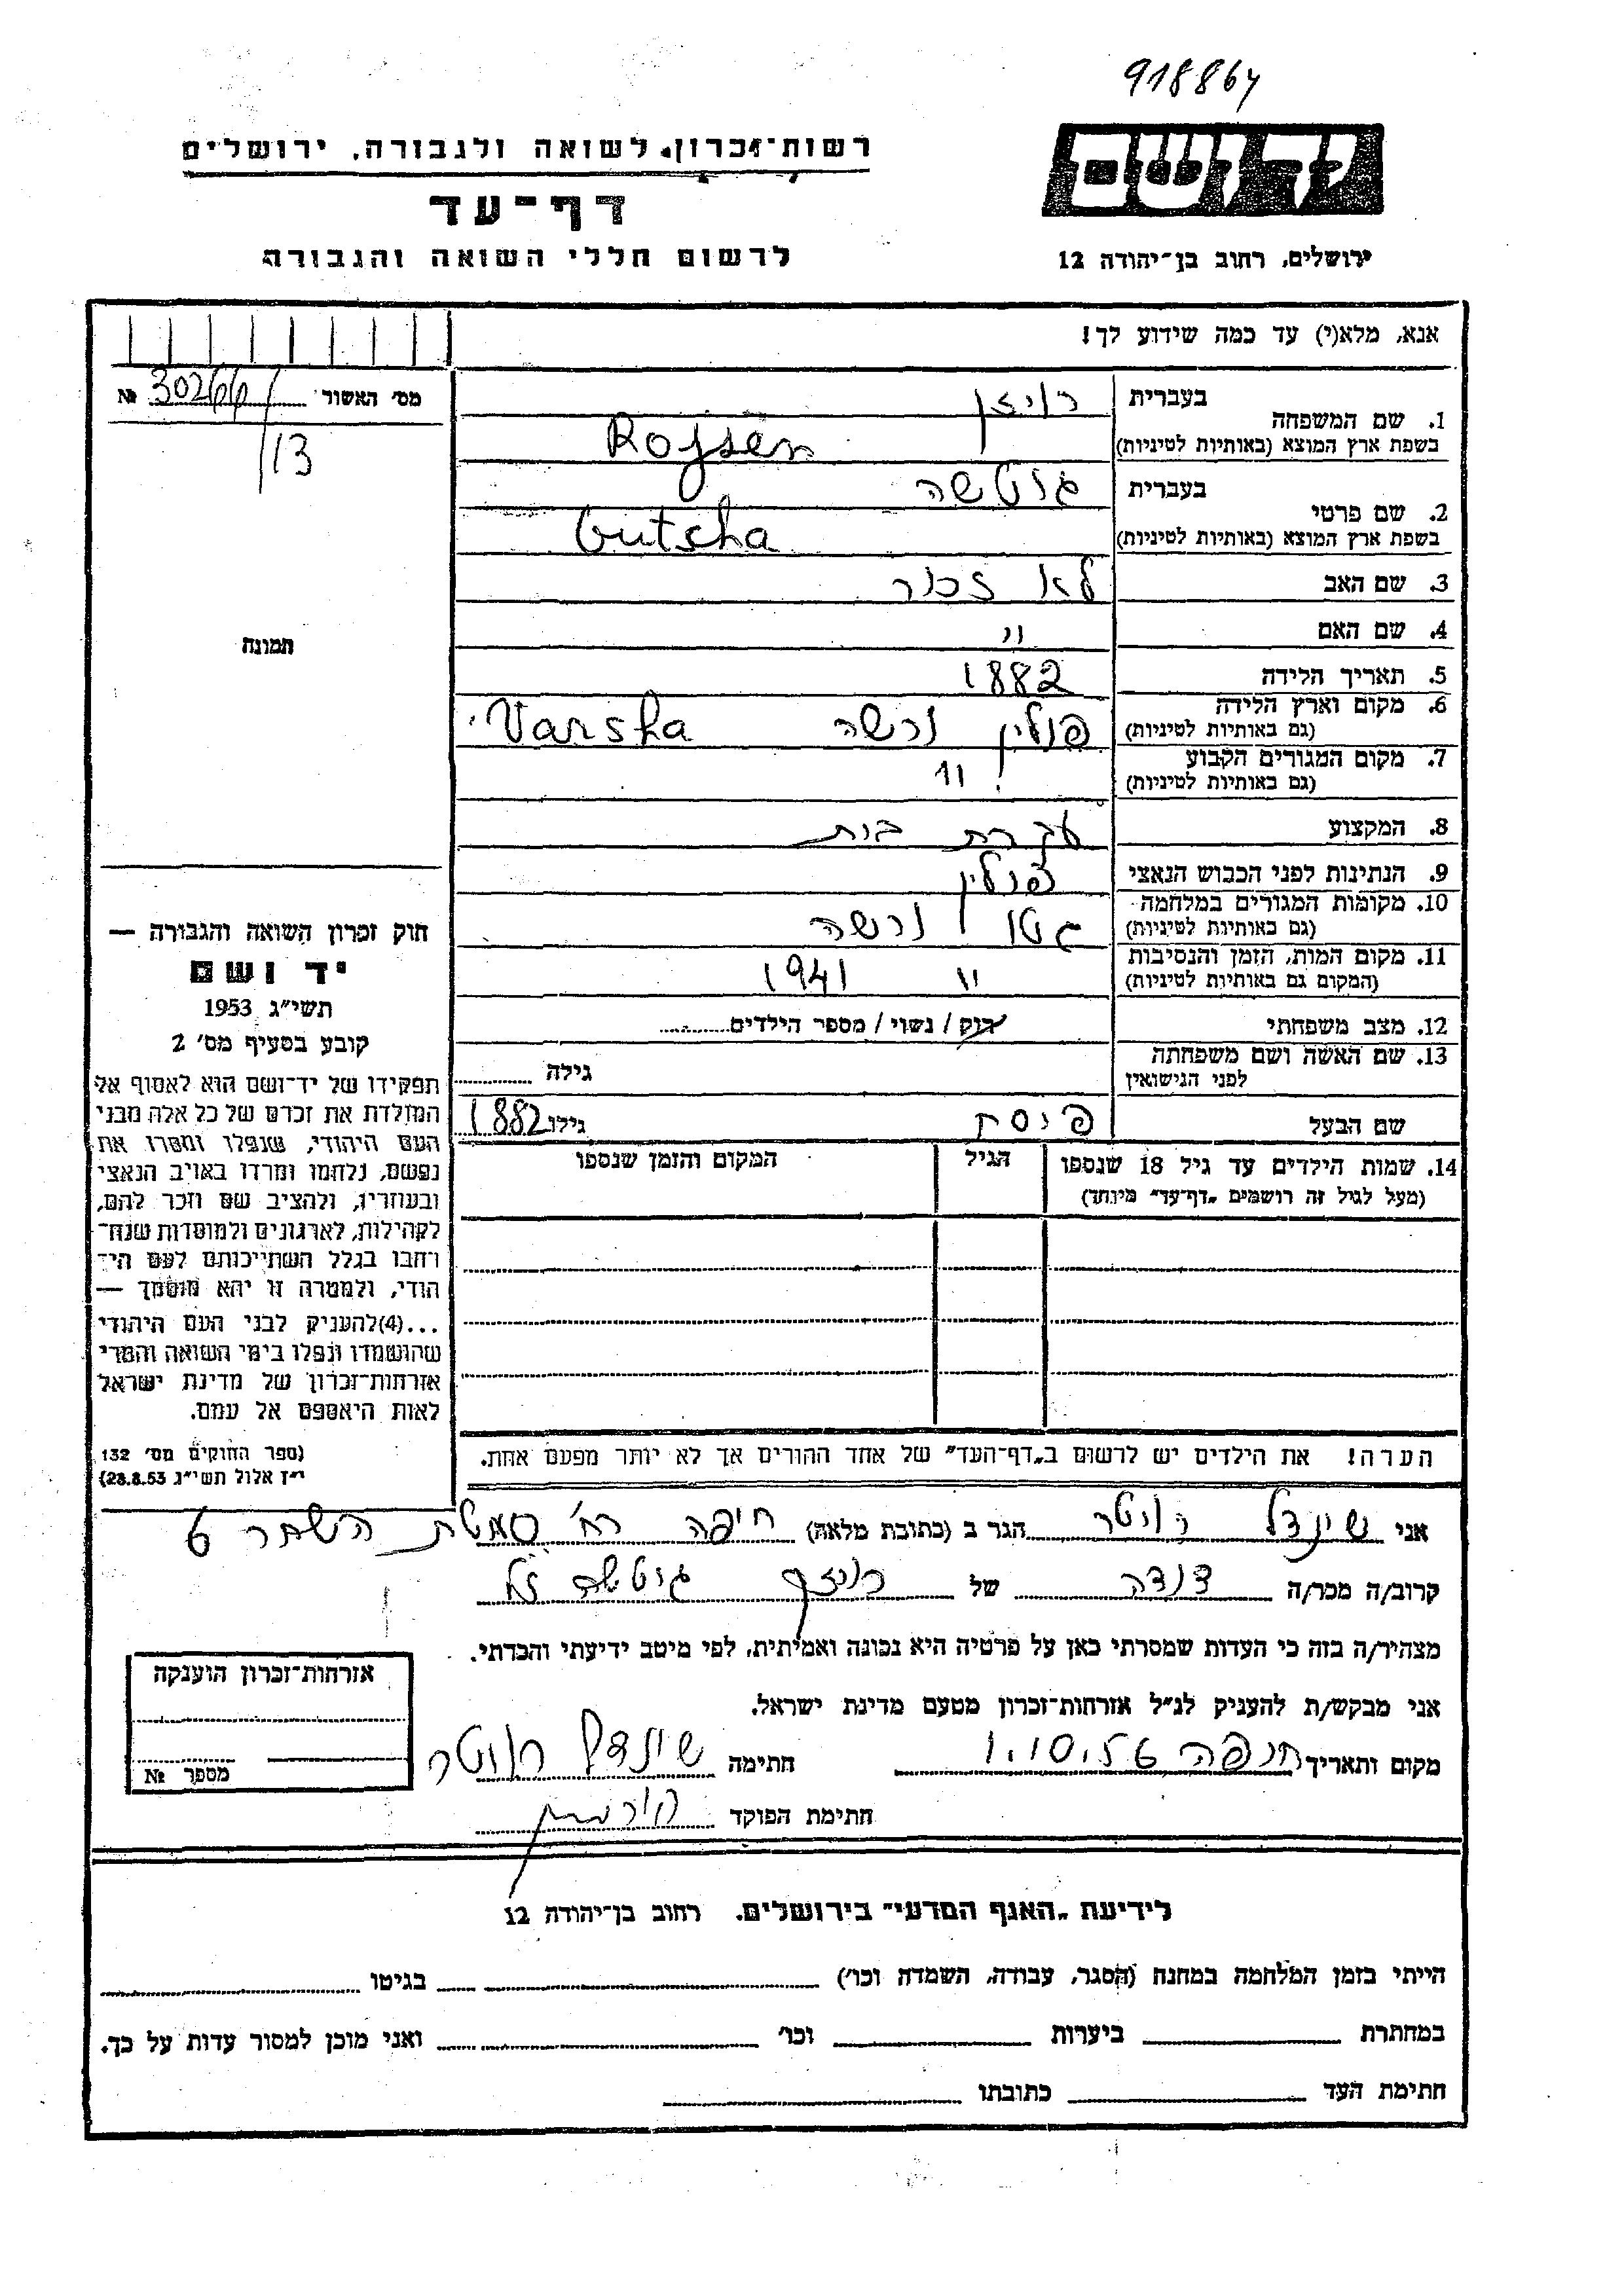 918864
יד ושם
רשות־זכרון לשואה ולגבורה, ירושלים
דף־עד
לרשום חללי השואה והגבורה
ירושלים, רחוב בן־יהודה 12
אנא, מלא(י) עד כמה שידוע לך!
מס׳ האשור № 30266/
/13
תמונה
בעברית רויזן
1. שם המשפחה
בשפת ארץ המוצא (באותיות לטיניות) Rojsen
בעברית גוטשה
2. שם פרטי
בשפת ארץ המוצא (באותיות לטיניות) Gutscha
3. שם האב לא זכור
4. שם האם "
5. תאריך הלידה 1882
6. מקום וארץ הלידה פולין ורשה Varsha
(גם באותיות לטיניות)
7. מקום המגורים הקבוע "
(גם באותיות לטיניות)
8. המקצוע עקרת בית
9. הנתינות לפני הכבוש הנאצי פולין
10. מקומות המגורים במלחמה גטו ורשה
(גם באותיות לטיניות)
11. מקום המות, הזמן והנסיבות " 1941
(המקום גם באותיות לטיניות)
12. מצב משפחתי רוק / נשוי / מספר הילדים
13. שם האשה ושם משפחתה
לפני הנישואין גילה
שם הבעל פיסח גילו 1882
14. שמות הילדים עד גיל 18 שנספו הגיל המקום והזמן שנספו
(מעל לגיל זה רושמים „דף־עד״ מיוחד)
הערה! את הילדים יש לרשום ב„דף־העד״ של אחד ההורים אך לא יותר מפעם אחת.
חוק זכרון השואה והגבורה —
יד ושם
תשי״ג 1953
קובע בסעיף מס׳ 2
תפקידו של יד־ושם הוא לאסוף אל
המולדת את זכרם של כל אלה מבני
העם היהודי, שנפלו ומסרו את
נפשם, נלחמו ומרדו באויב הנאצי
ובעוזריו, ולהציב שם וזכר להם,
לקהילות, לארגונים ולמוסדות שנח־
רחבו בגלל השתייכותם לעם הי־
הודי, ולמטרה זו יהא מוסמך —
...(4)להעניק לבני העם היהודי
שהושמדו ונפלו בימי השואה והמרי
אזרחות־זכרון של מדינת ישראל
לאות היאספם אל עמם.
(ספר החוקים מס׳ 132
י״ז אלול תשי״ג 28.8.53)
אני שינדל רוטר הגר ב (כתובת מלאה) חיפה רח׳ סמטת השחר 6
קרוב/ה מכר/ה דודה של רויזן גוטשה ז״ל
מצהיר/ה בזה כי העדות שמסרתי כאן על פרטיה היא נכונה ואמיתית, לפי מיטב ידיעתי והכרתי.
אני מבקש/ת להעניק לנ״ל אזרחות־זכרון מטעם מדינת ישראל.
מקום ותאריך חיפה 1.10.56 חתימה שינדל רוטר
חתימת הפוקד
אזרחות־זכרון הוענקה
מספר №
לידיעת „האגף המדעי״ בירושלים. רחוב בן־יהודה 12
הייתי בזמן המלחמה במחנה (הסגר, עבודה, השמדה וכו׳) בגיטו
במחתרת ביערות וכו׳ ואני מוכן למסור עדות על כך.
חתימת העד כתובתו